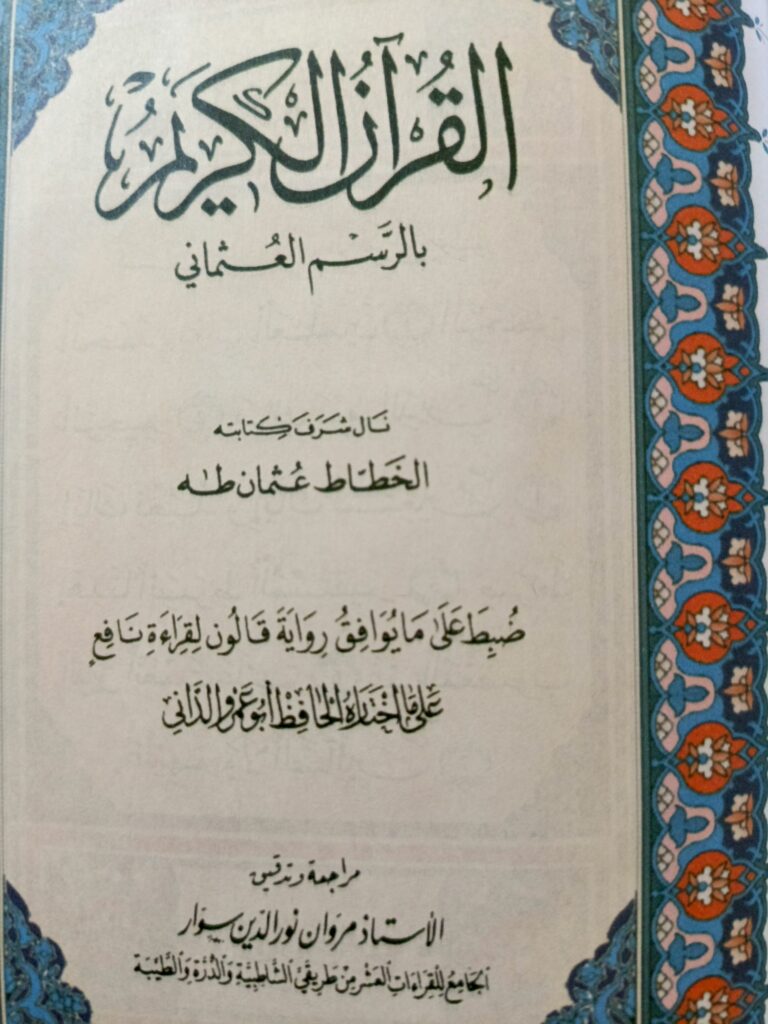 القُرآنُ الكَرِيمُ
بالرَّسْمِ العُثماني
نَال شَرَفَ كِتابته
الخَطّاط عُثمان طٰه
ضُبِطَ عَلَىٰ مَا يُوَافِقُ رِوَايَةَ قَالُون لِقِرَاءَةِ نَافِعٍ
عَلَىٰ مَا اخْتَارَهُ الْحَافِظْ أَبُو عَمْرٍو الدَّانِي
مراجعة وتدقيق
الأستاذ مروان نور الدين سوار
الجَامِعُ لِلْقِرَاءَاتِ العَشْرِ مِنْ طَرِيقَيِ الشَّاطِبِيَّةِ وَالدُّرَّةِ وَالطَّيِّبَة